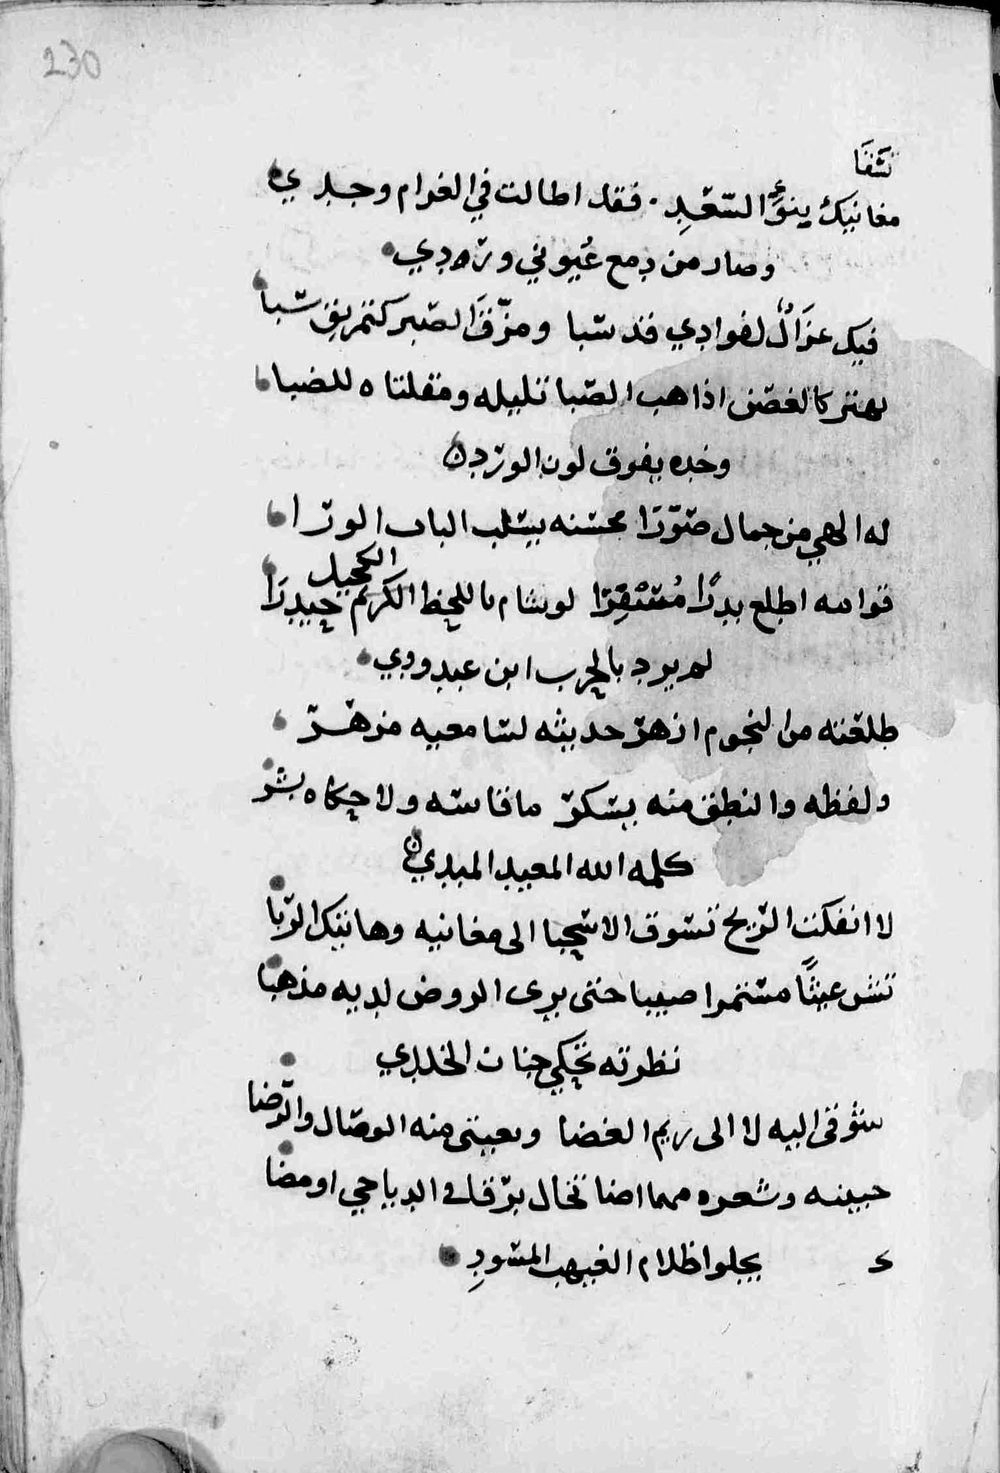 230
تشقا
مغانيك ينوء السعد فقد اطالت في الغرام وجدي
وصار من دمع عيوني وردي
فيك غزال لفوادي قد سبا ومزق الصبر كتمزيق سبا
يهتز كالغصن اذا هب الصبا تليله ومقلتاه للضبا
وخده يفوق لون الورد
له الهي من جمال صورا بحسنه يسلب الباب الورا
فوالله اطلع بدرا مسفرا لو شام باللحظ الكريم حيدرا
الكحيل
لم يرد بالحرب ابن عبد ودي
طلعته من النجوم ازهر حديثه لسامعيه مزهر
ولفظه والنطق منه يسكر ما قاسه ولا حكاه بشر
كلمه الله المعيد المبدي
لا انفكت الريح تسوق الاسحبا الى مغانيه وهاتيك الربا
غيثا مستمرا صيبا حتى يرى الروض لديه مذهبا
نظرته تحكي جنان الخلدي
شوقي اليه لا الى ريم الغضا وبعيتي منه الوصال والرضا
جبينه وشعره مما اضا تخال برقا في الدياجي اومضا
يجلوا ظلام الغيهب المسود